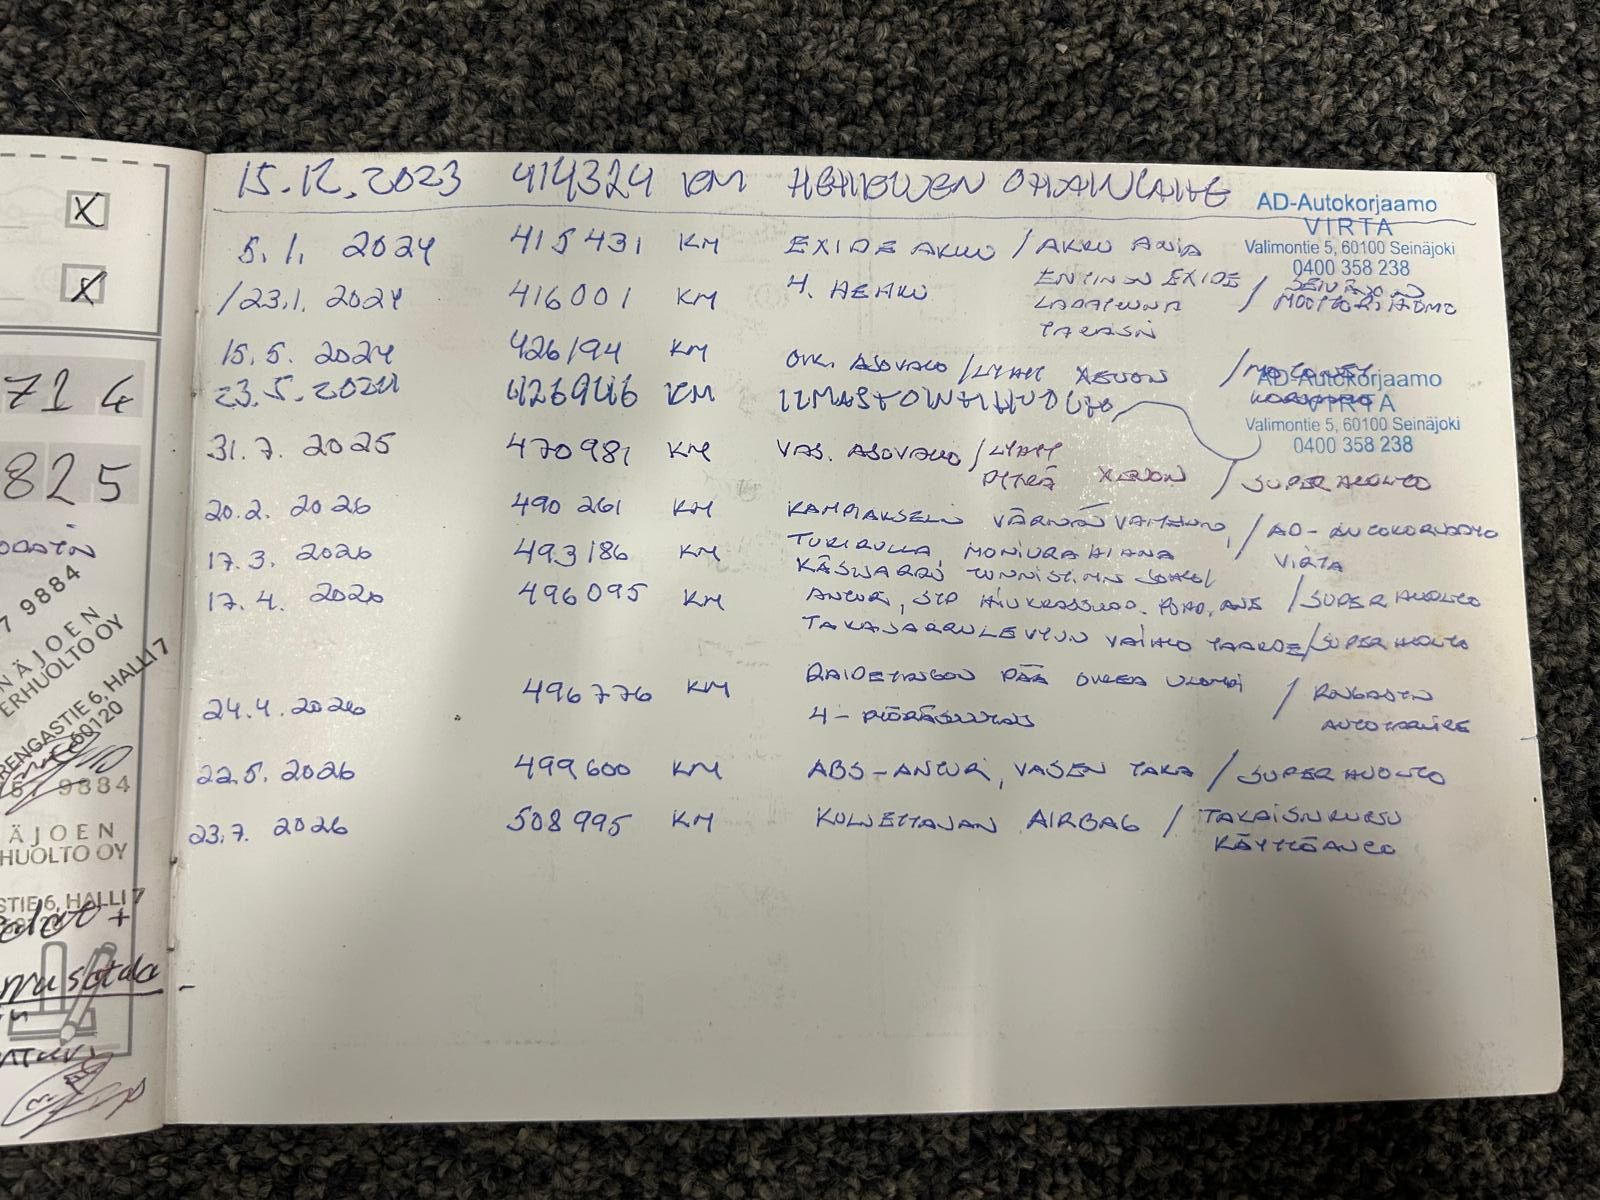 15.12.2023 414324 KM
AD-Autokorjaamo
VIRTA
Valimontie 5, 60100 Seinäjoki
0400 358 238
5.1. 2024 415431 KM EXIDE AKKU / AKKU ANIA
/23.1. 2024 416001 KM 4. HEHKU ENTINEN EXIDE / SEINÄJOEN
LADATTUNA MOOTTORITALO
TAKASIN
15.5. 2024 426194 KM OIK. AJOVALO / LYHYT XENON /
23.5. 2024 426946 KM ILMASTOINTIHUOLTO
AD-Autokorjaamo
VIRTA
Valimontie 5, 60100 Seinäjoki
0400 358 238
31.7. 2025 470981 KM VAS. AJOVALO / LYHYT
PITKÄ XENON / SUPERHUOLTO
20.2. 2026 490 261 KM KAMPIAKSELIN VÄRINÄN VAIMENN, / AD-AUTOKORJAAMO
17.3. 2026 493186 KM TUKIRULLA, MONIURAHIHNA VIRTA
KÄSIJARRU TUNNISTIMEN
17.4. 2026 496095 KM ANTURI, / SUPERHUOLTO
TAKAJARRULEVYJEN VAIHTO TAAKSE / SUPERHUOLTO
24.4. 2026 496776 KM RAIDETANGON PÄÄ OIKEA ULOMPI / RENGASTIN
4-PYÖRÄSUUNTAUS AUTOTARVIKE
22.5. 2026 499600 KM ABS-ANTURI, VASEN TAKA / SUPERHUOLTO
23.7. 2026 508995 KM KULJETTAJAN AIRBAG / TAKAISINKUTSU
KÄYTTÖAUTO
X
X
714
825
7 9884
NÄJOEN
ERHUOLTO OY
RENGASTIE 6, HALLI 7
60120
9884
ÄJOEN
HUOLTO OY
STIE 6, HALLI 7